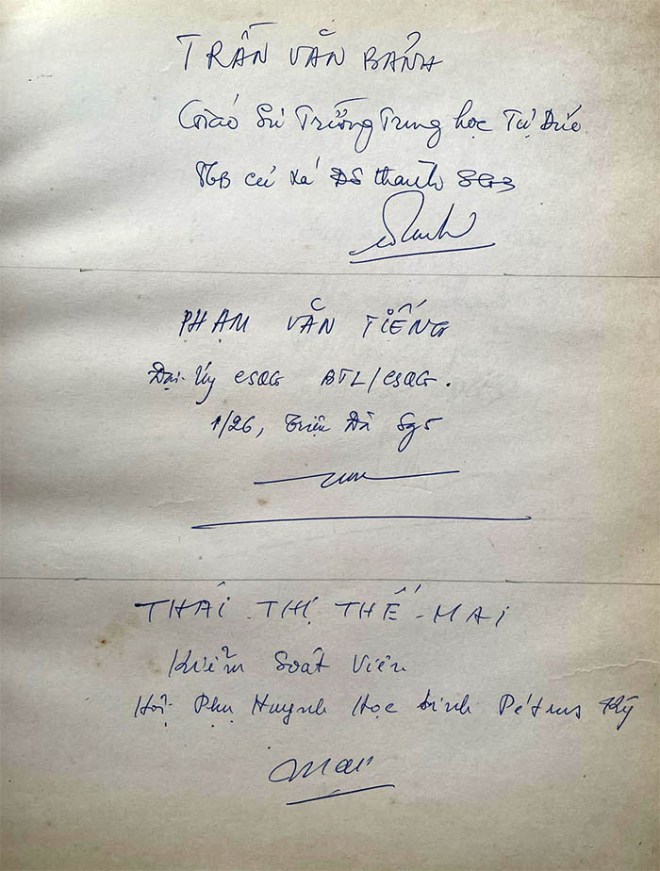 TRẦN VĂN BẢNH
Giáo Sư Trường Trung học Tự Đức
cư xá Đô thành SG3
PHẠM VĂN TIẾNG
Đại-Úy CSQG BTL/CSQG.
1/26, Triệu Đà Sg5
THÁI THỊ THẾ-MAI
Kiểm Soát Viên
Hội Phụ Huynh Học Sinh Pétrus Ký
Mai